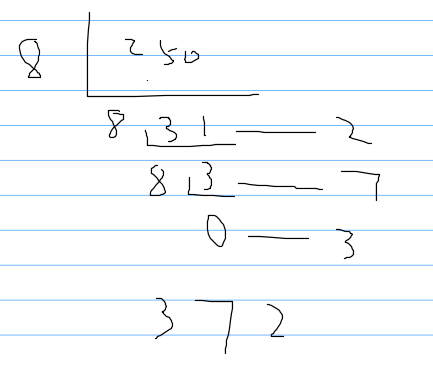 8 250
8 31 — 2
8 3 — 7
0 — 3
3 7 2